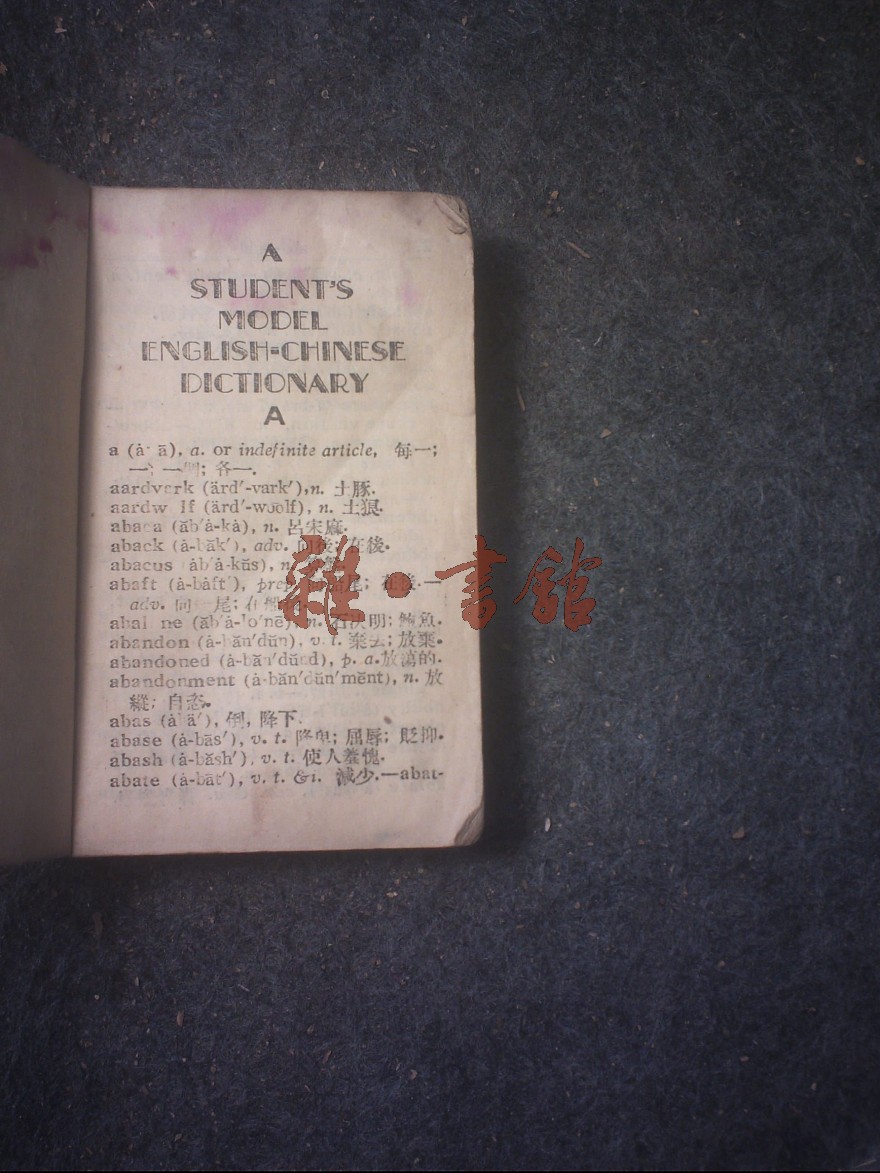 A
STUDENT'S
MODEL
ENGLISH-CHINESE
DICTIONARY
A
a (ȧ· ā), a. or indefinite article, 每一;
一; 各一.
(ärd′-vark′), n. 土豚.
(ärd′-wo͝olf), n. 土狼.
(ăb′ȧ-kȧ), n. 呂宋麻.
aback (ȧ-băk′), adv. 向後; 在後.
abacus (ăb′ȧ-kŭs), n.
abaft (ȧ-bȧft′), prep. 在後.—
adv. 向
(ăb′ȧ-lo′nē), n. 石決明; 鮑魚.
abandon (ȧ-băn′dŭn), v. t. 棄去; 放棄.
abandoned (ȧ-băn′dŭnd), p. a. 放蕩的.
abandonment (ȧ-băn′dŭn′mĕnt), n. 放
縱; 自恣.
abas 倒, 降下.
abase (ȧ-bās′), v. t. 降卑; 屈辱; 貶抑.
abash (ȧ-băsh′), v. t. 使人羞愧.
abate (ȧ-bāt′), v. t. & i. 減少.—abat-
雜·書館